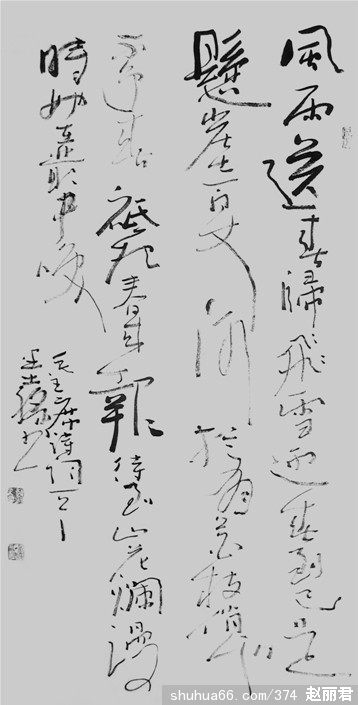 風雨送春歸飛雪迎春到已是
懸崖百丈冰猶有花枝俏也
不爭春祗把春來報待到山花爛漫
時她在叢中笑
毛主席詩詞一首
shuhua66.com/374 赵丽君